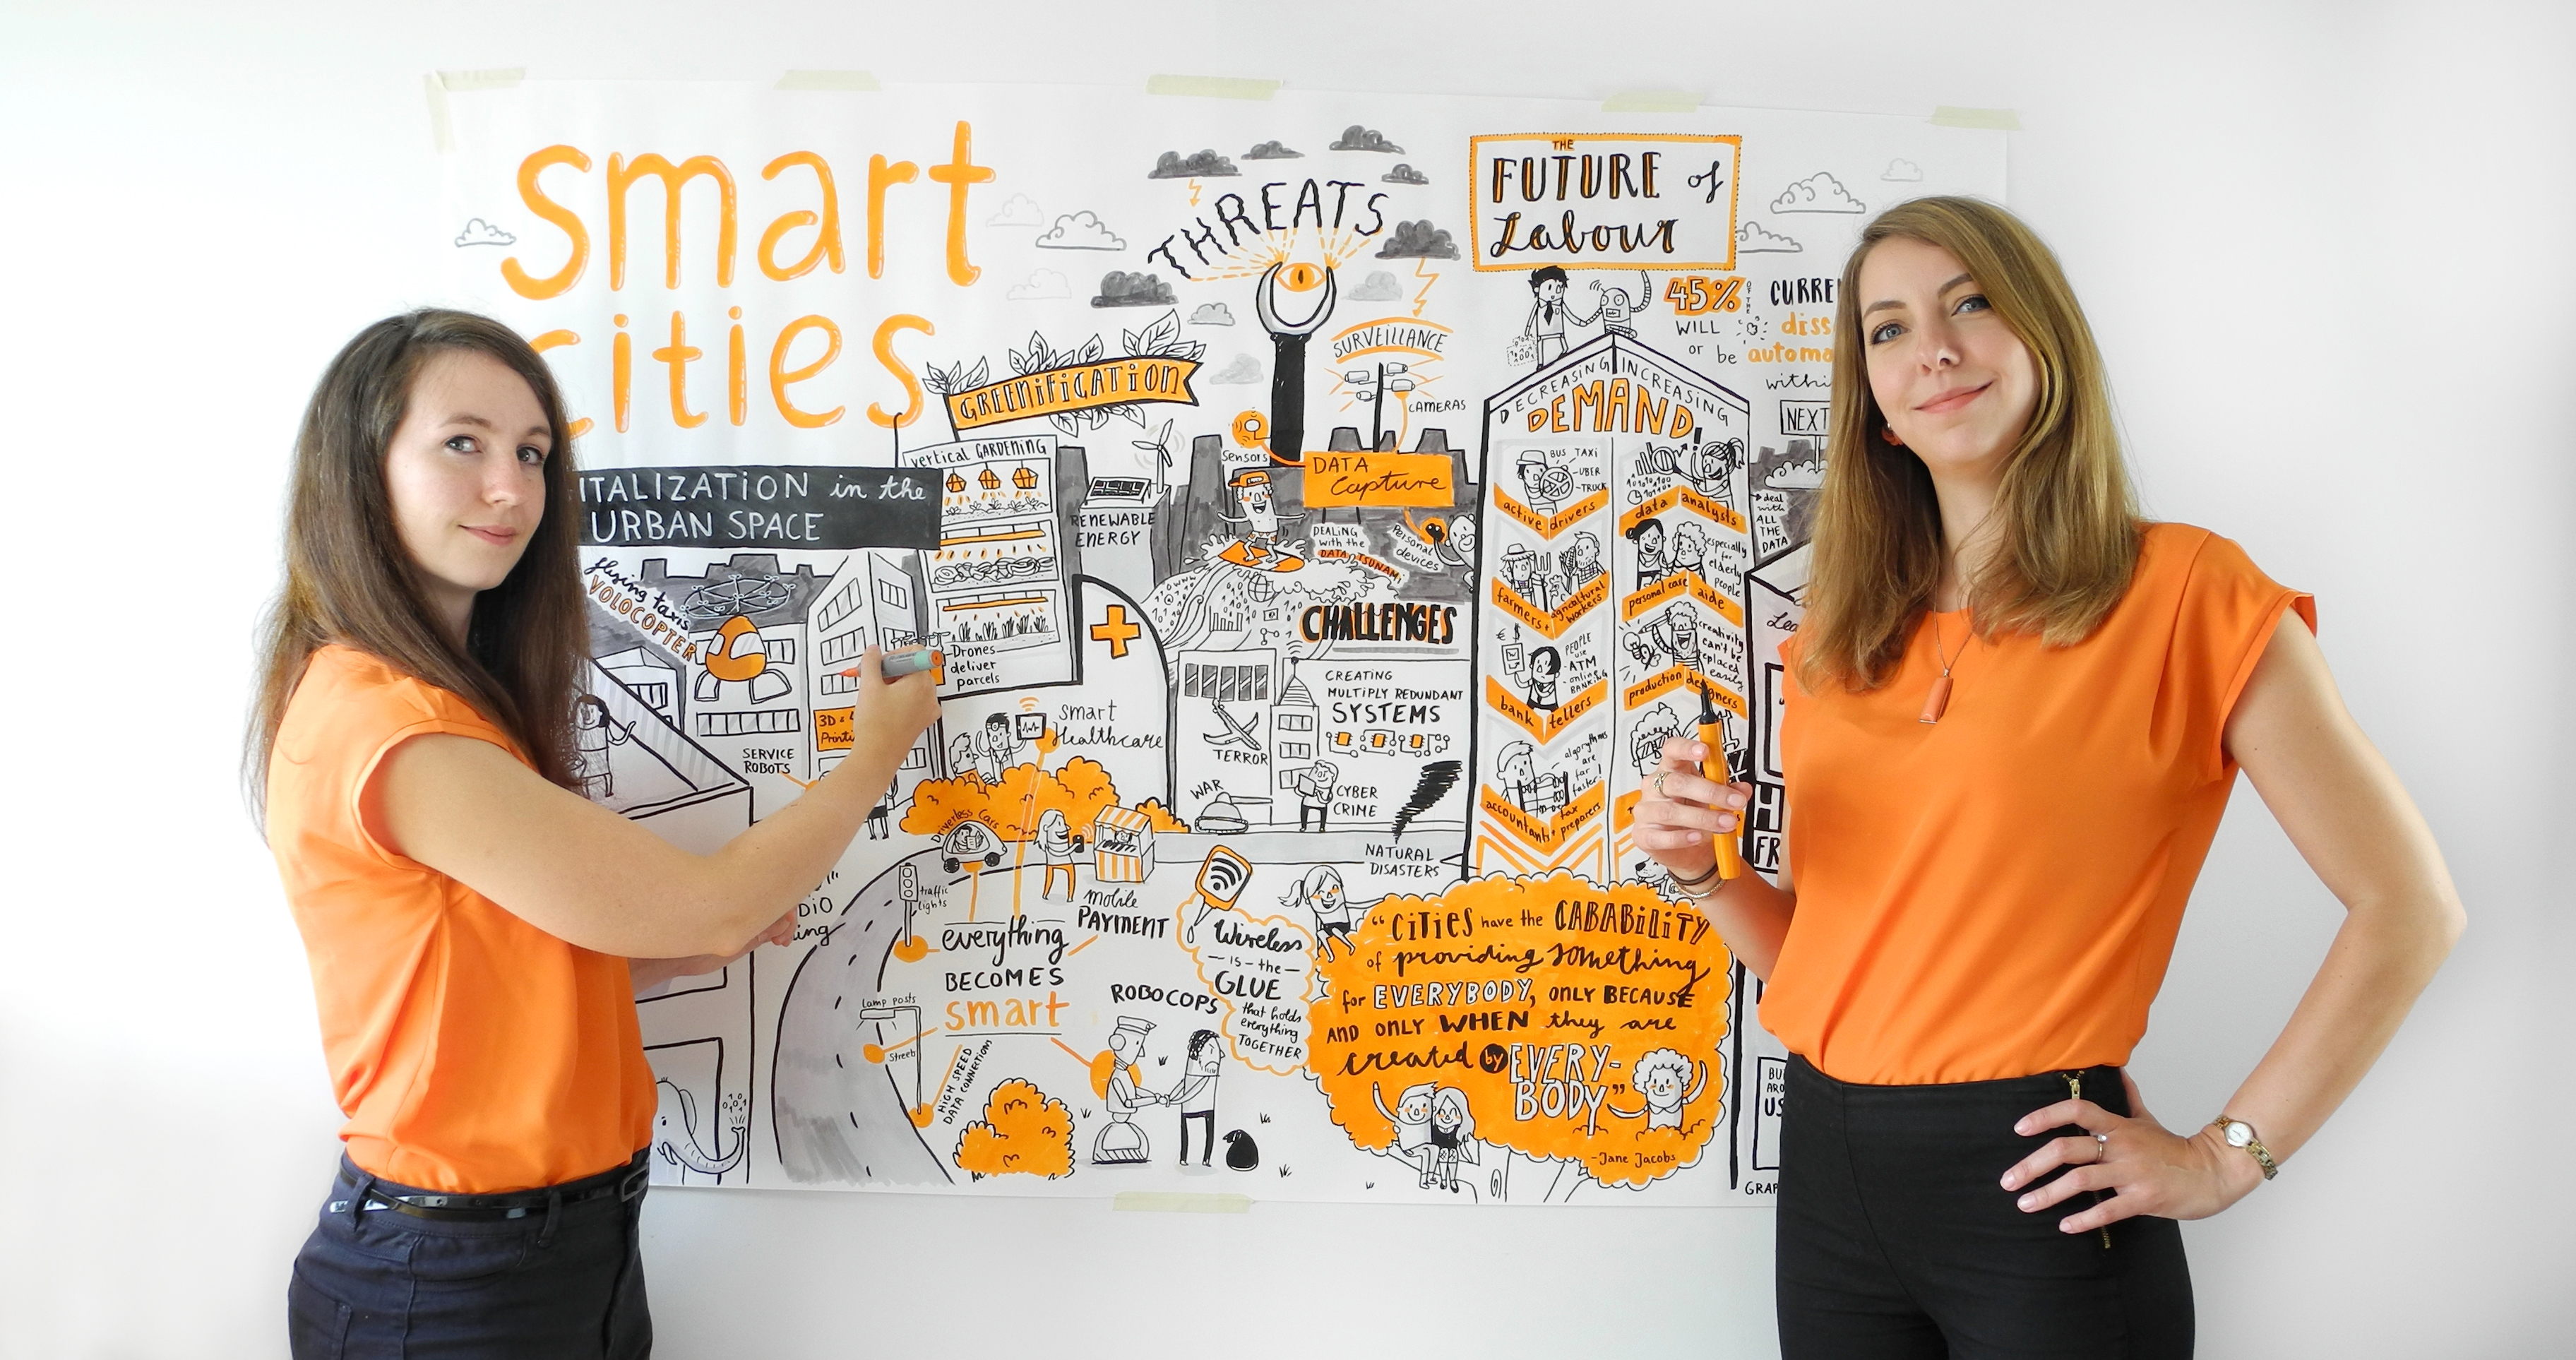 smart
cities
ITALIZATION in the
URBAN SPACE
flying taxis
VOLOCOPTER
SERVICE
ROBOTS
3D &
GREENIFICATION
vertical GARDENING
RENEWABLE
ENERGY
Drones
deliver
parcels
smart
Healthcare
Driverless Cars
traffic
lights
mobile
PAYMENT
everything
BECOMES
smart
Lamp posts
Streets
HIGH SPEED
DATA CONNECTIONS
ROBOCOPS
Wireless
- is - the -
GLUE
that holds
everything
TOGETHER
THREATS
SURVEILLANCE
CAMERAS
Sensors
DATA
Capture
DEALING
with the
DATA TSUNAMI
Personal
devices
CHALLENGES
CREATING
MULTIPLY REDUNDANT
SYSTEMS
TERROR
WAR
CYBER
CRIME
NATURAL
DISASTERS
THE
FUTURE of
Labour
45% OF THE CURRE
WILL diss
or be automa
withi
NEXT
DECREASING INCREASING
DEMAND!
BUS TAXI
UBER
TRUCK
active drivers
farmers + agricultural
workers
PEOPLE
use
- ATM
- online
BANKING
bank tellers
algorythms
are
far
faster!
accountants tax
preparers
data analysts
deal
with
ALL
THE
DATA
especially
for
elderly
people
personal care aide
creativity
can't be
replaced
easily
"CITIES have the CABABILITY
of providing something
for EVERYBODY, ONLY BECAUSE
AND ONLY WHEN they are
created by EVERY-
BODY"
- Jane Jacobs